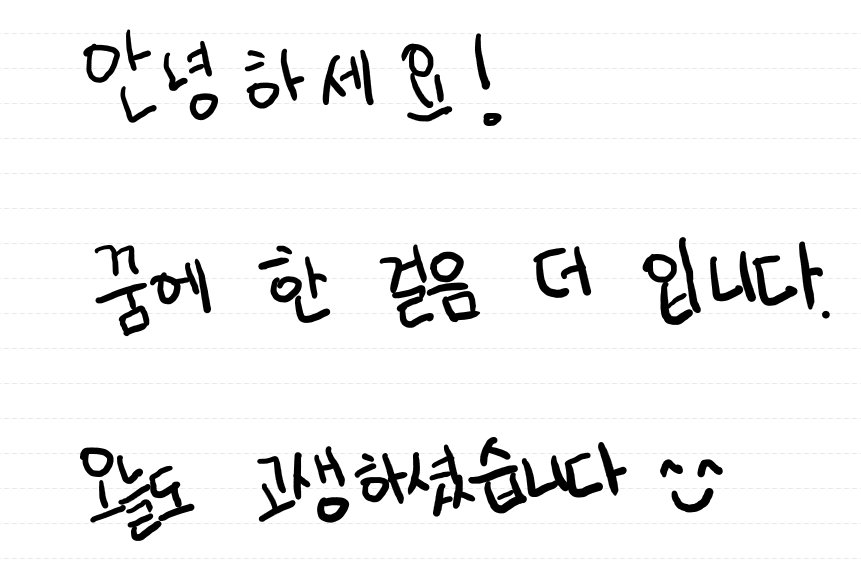 안녕하세요!
꿈에 한 걸음 더 입니다.
오늘도 고생하셨습니다 ^^